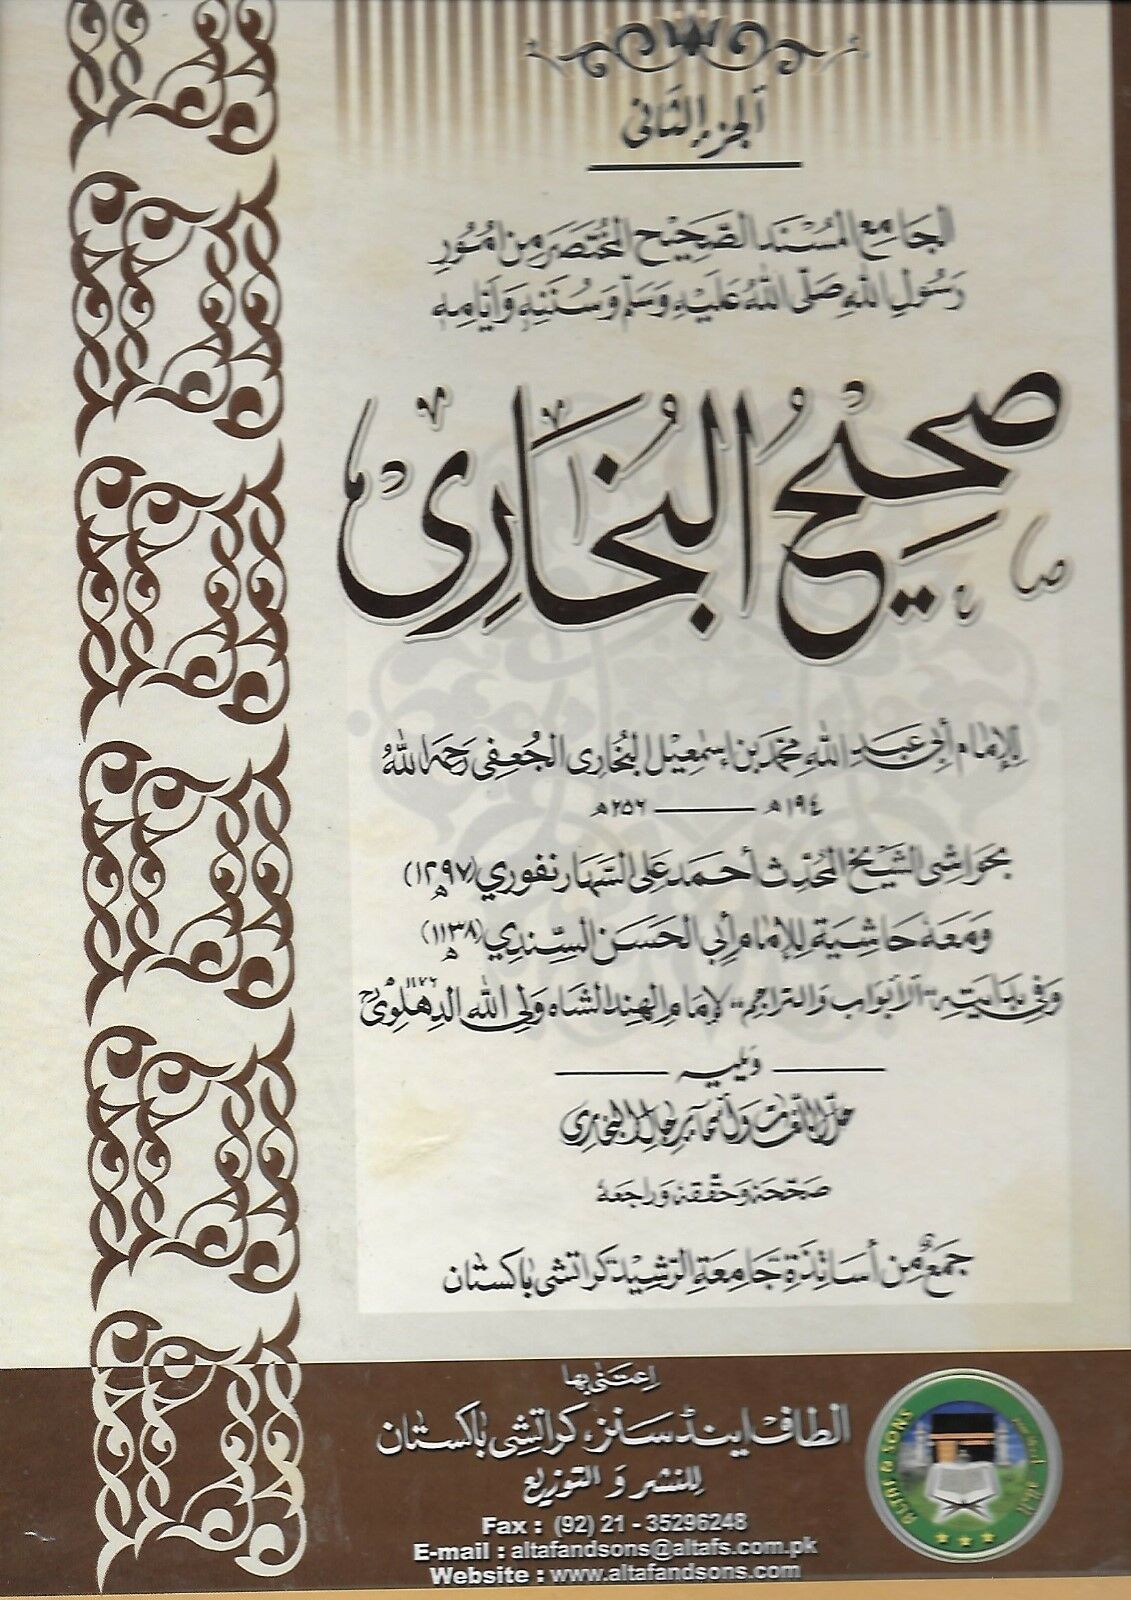 الجزء الثانی
الجامع المسند الصحيح المختصر من امور
رسول الله صلی الله عليه وسلم وسننه وايامه
صحيح البخاری
للإمام أبي عبد الله محمد بن إسمعيل البخاری الجعفی رحمه الله
١٩٤ﻫ ــــــ ٢٥٦ﻫ
بحواشی الشيخ المحدث أحمد علی السهارنفوري (١٢٩٧ﻫ)
ومعه حاشية للإمام أبي الحسن السندي (١١٣٨ﻫ)
وفی بدايته "الأبواب والتراجم" لإمام الهند الشاه ولی الله الدهلویؒ ١١٧٦
ويليه
صححه وحققه وراجعه
جمع من أساتذة جامعة الرشيد کراتشی باکستان
اعتنی بها
الطاف اينڈ سنز، کراتشی باکستان
للنشر و التوزيع
Fax : (92) 21 - 35296248
E-mail : altafandsons@altafs.com.pk
Website : www.altafandsons.com
ALTAF & SONS